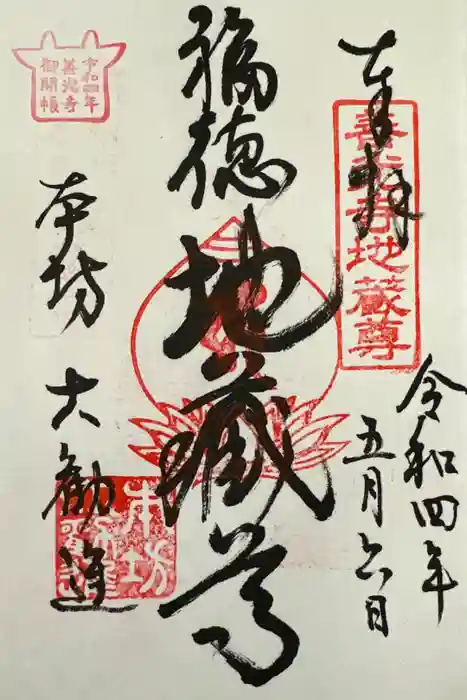 奉拝
善光寺地蔵尊
令和四年
五月六日
福徳
地蔵尊
令和四年
善光寺
御開帳
本坊
大勧進